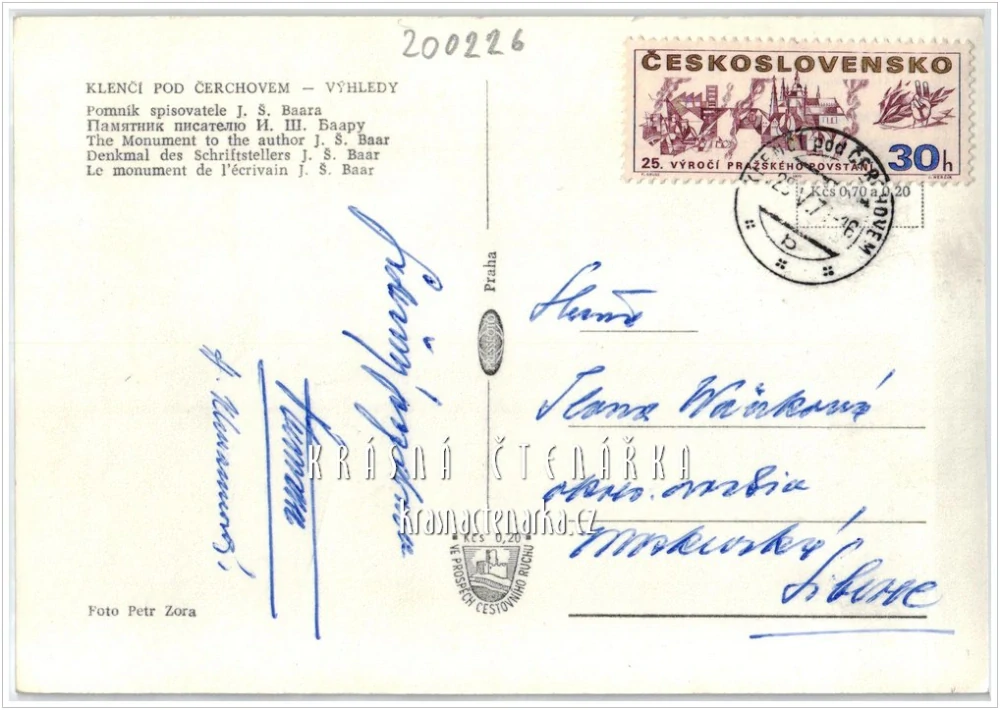 200226
KLENČÍ POD ČERCHOVEM — VÝHLEDY
Pomník spisovatele J. Š. Baara
Памятник писателю И. Ш. Баару
The Monument to the author J. Š. Baar
Denkmal des Schriftstellers J. Š. Baar
Le monument de l'écrivain J. Š. Baar
ČESKOSLOVENSKO
25. VÝROČÍ PRAŽSKÉHO POVSTÁNÍ
30h
KLENČÍ pod ČERCHOVEM
b
Kčs 0,70 a 0,20
Praha
Srdečný pozdrav
Šumavy
Ilona Vaňková
okres.
Moskevská
Liberec
KRÁSNÁ ČTENÁŘKA
krasnactenarka.cz
Kčs 0,20
VE PROSPĚCH CESTOVNÍHO RUCHU
Foto Petr Zora